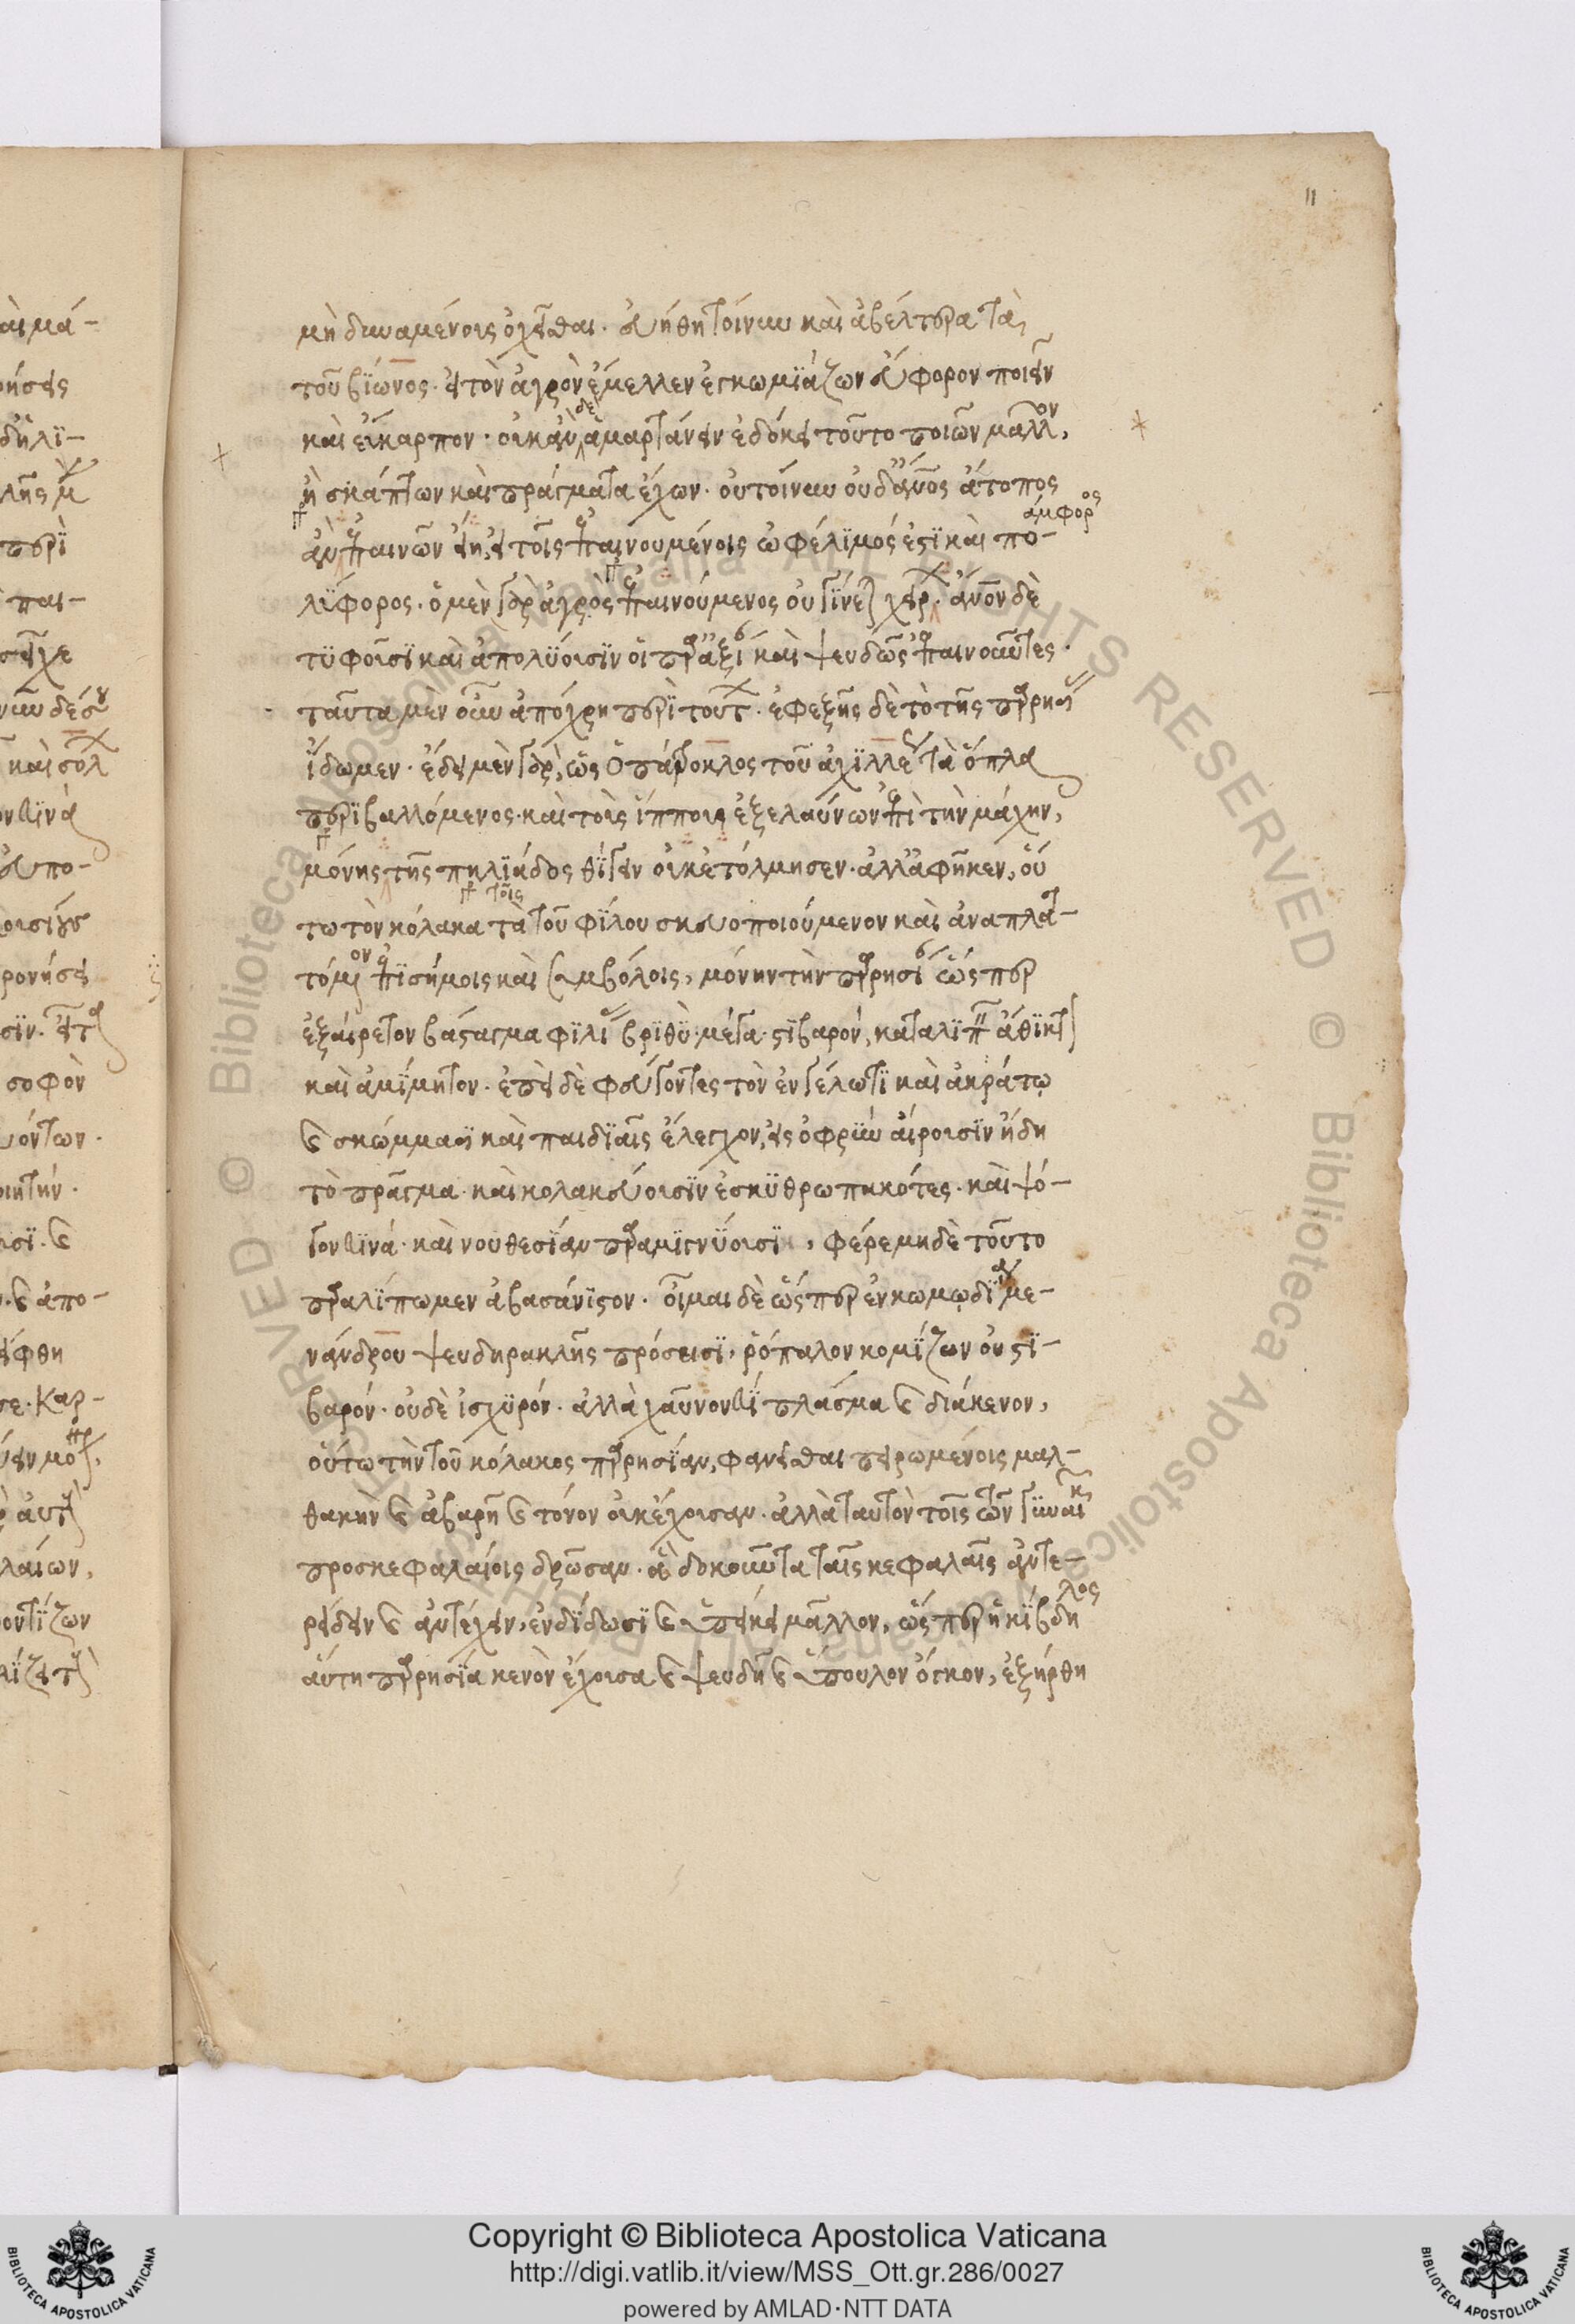 11
μὴ δυναμένοις ὀχεῖσθαι. εὐήθη τοίνυν καὶ ἀβέλτερα τὰ
τοῦ βίωνος. εἰ τὸν ἀγρὸν ἔμελλεν ἐγκωμιάζων εὔφορον ποιεῖν
καὶ εὔκαρπον. οὐκ ἂν ἁμαρτάνειν ἐδόκει τοῦτο ποιῶν μᾶλλον,
ἢ σκάπτων καὶ πράγματα ἔχων. οὐ τοίνυν οὐδ' ἄνος ἄτοπος
ἀμφορος
ἂν ἐπαινῶν εἴη, εἰ τοῖς ἐπαινουμένοις ὠφέλιμός ἐστι καὶ πο-
λίφορος. ὁ μὲν γὰρ ἀγρὸς ἐπαινούμενος οὐ γίνεται χείρων. ἄνον δὲ
τυφοῦσι καὶ ἀπολύουσιν οἱ παρ' ἀξίαν καὶ ψευδῶς ἐπαινοῦντες.
ταῦτα μὲν οὖν ἀπόχρη περὶ τούτων. ἐφεξῆς δὲ τὸ τῆς παρρησίας
ἴδωμεν. ἔδει μὲν γὰρ, ὡς ὁ πάτροκλος τοῦ ἀχιλλέως τὰ ὅπλα
περιβαλλόμενος. καὶ τοὺς ἵππους ἐξελαύνων ἐπὶ τὴν μάχην,
μόνης τῆς πηλιάδος θίγειν οὐκ ἐτόλμησεν. ἀλλ' ἀφῆκεν, οὕ
τω τὸν κόλακα τὰ τοῦ φίλου σκευοποιούμενον καὶ ἀναπλατ-
τόμενον ἐπισήμοις καὶ συμβόλοις, μόνην τὴν παρρησίαν ὥσπερ
ἐξαίρετον βάσταγμα φιλίας βριθὺ. μέγα. στιβαρόν, καταλιπεῖν ἄθικτον
καὶ ἀμίμητον. ἐπεὶ δὲ φεύγοντες τὸν ἐν γέλωτι καὶ ἀκράτῳ
καὶ σκώμμασι καὶ παιδιαῖς ἔλεγχον, εἰς ὀφρὺν αἴρουσιν ἤδη
τὸ πρᾶγμα. καὶ κολακεύουσιν ἐσκυθρωπακότες. καὶ ψό-
γον τινὰ. καὶ νουθεσίαν παραμιγνύουσι, φέρε μηδὲ τοῦτο
παραλίπωμεν ἀβασάνιστον. οἶμαι δὲ ὥσπερ ἐν κωμῳδίᾳ με-
νάνδρου ψευδηρακλῆς πρόσεισι, ῥόπαλον κομίζων οὐ στι-
βαρόν. οὐδὲ ἰσχυρόν. ἀλλὰ χαῦνόν τι πλάσμα καὶ διάκενον,
οὕτω τὴν τοῦ κόλακος παρρησίαν, φανεῖσθαι πειρωμένοις μαλ-
θακὴν καὶ ἀβαρῆ καὶ τόνον οὐκ ἔχουσαν. ἀλλὰ ταυτὸν τοῖς τῶν γυναικῶν
προσκεφαλαίοις δρῶσαν. ἃ δοκοῦντα ταῖς κεφαλαῖς ἀντε-
ρείδειν καὶ ἀντέχειν, ἐνδίδωσι καὶ ὑπείκει μᾶλλον, ὥσπερ ἡ κίβδηλος
αὕτη παρρησία κενὸν ἔχουσα καὶ ψευδῆ καὶ ὕπουλον ὄγκον, ἐξήρθη
Copyright © Biblioteca Apostolica Vaticana
http://digi.vatlib.it/view/MSS_Ott.gr.286/0027
powered by AMLAD·NTT DATA